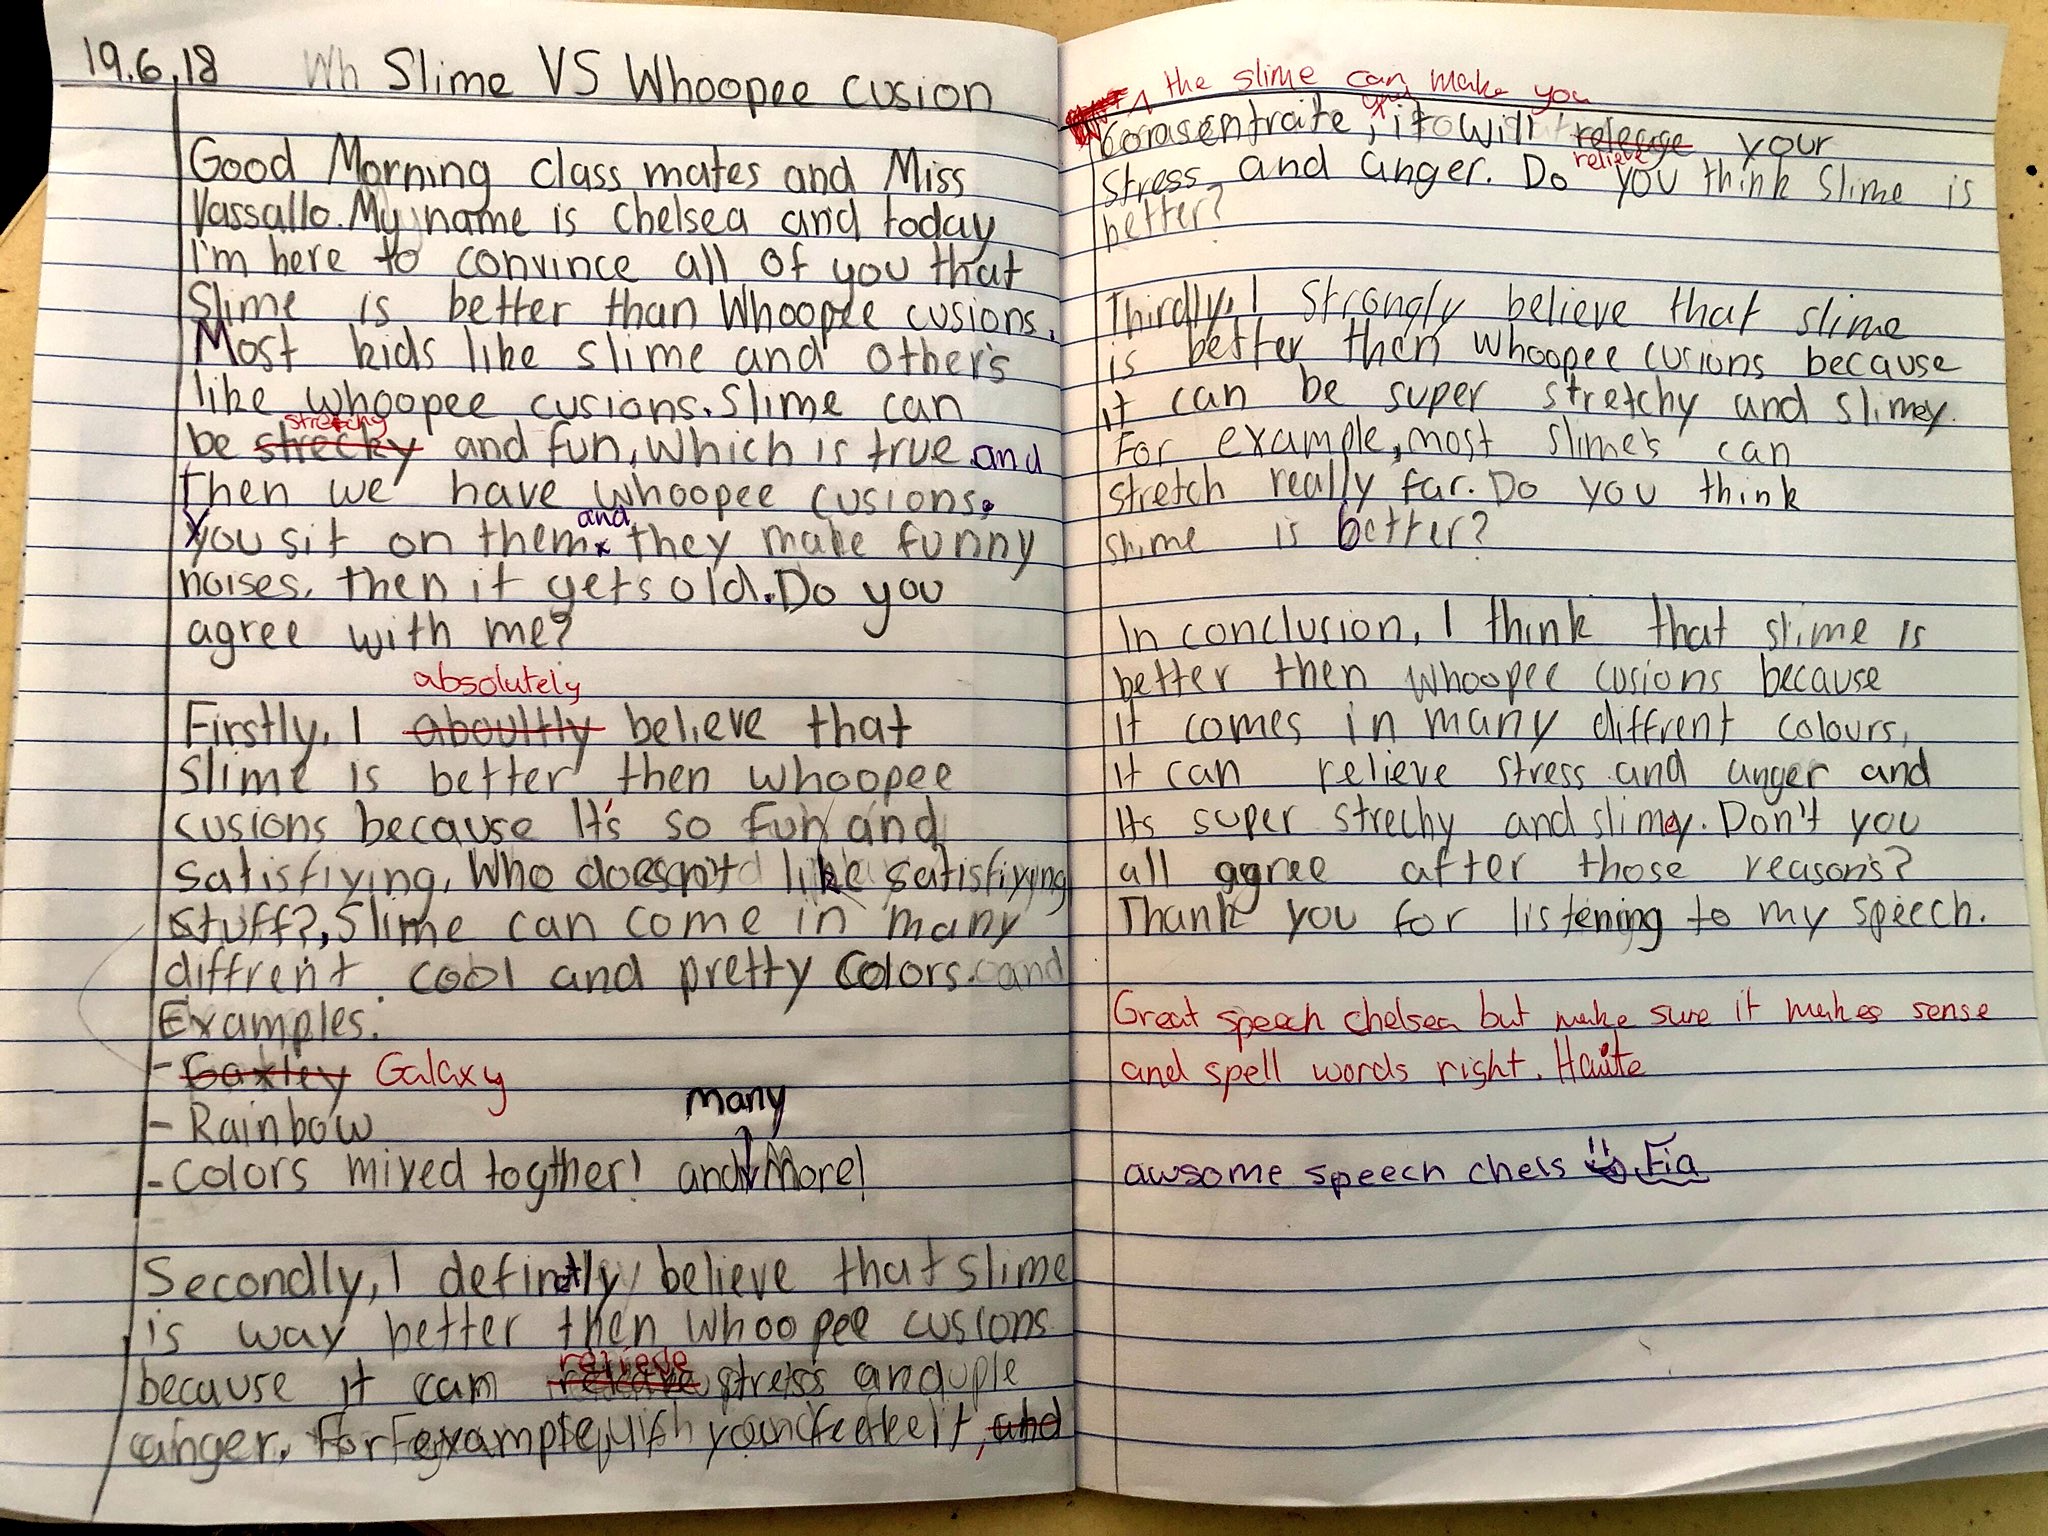 19.6.18 Wh Slime VS Whoopee cusion
Good Morning class mates and Miss
Vassallo. My name is Chelsea and today
I'm here to convince all of you that
Slime is better than Whoopee cusions.
Most kids like slime and other's
like whoopee cusions. Slime can
stretchy
be strecky and fun, Which is true and
then we have whoopee cusions.
and
You sit on them they make funny
noises. Then it gets old. Do you
agree with me?
absolutely
Firstly, I aboultly believe that
Slime is better then whoopee
cusions because It's so fun and
satisfiying. Who doesn't like satisfiying
stuff?, Slime can come in many
diffrent cool and pretty Colors. and
Examples:
- Gaxley Galaxy
- Rainbow
many
- Colors mixed togther! and More!
Secondly, I definetly believe that slime
is way better then Whoopee cusions
relieve
because it can stress and
anger. For example, if you feel it, and
the slime can make you
you
, it will release your
relieve
stress and anger. Do you think Slime is
better?
Thirdly, I strongly believe that slime
is better then whoopee cusions because
it can be super stretchy and slimey.
For example, most slime's can
stretch really far. Do you think
slime is better?
In conclusion, I think that slime is
better then whoopee cusions because
it comes in many diffrent colours,
it can relieve stress and anger and
Its super strechy and slimey. Don't you
all agree after those reason's?
Thank you for listening to my speech.
Great speech chelsea but make sure it makes sense
and spell words right.
awsome speech chels Fia